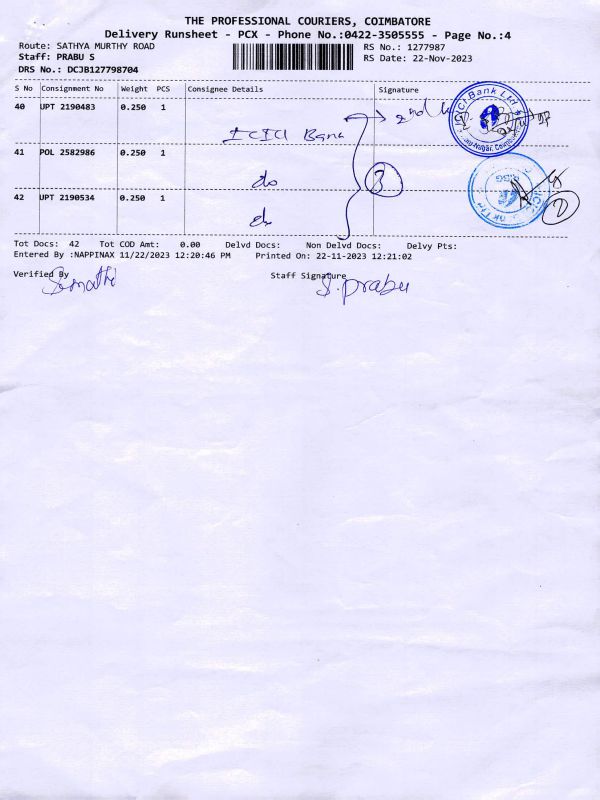 THE PROFESSIONAL COURIERS, COIMBATORE
Delivery Runsheet - PCX - Phone No.:0422-3505555 - Page No.:4
Route: SATHYA MURTHY ROAD
RS No.: 1277987
Staff: PRABU S
RS Date: 22-Nov-2023
DRS No.: DCJB127798704
S No Consignment No Weight PCS Consignee Details Signature
40 UPT 2190483 0.250 1
ICICI Bank
ICICI Bank Ltd
41 POL 2582986 0.250 1
do
3
42 UPT 2190534 0.250 1
do
Tot Docs: 42 Tot COD Amt: 0.00 Delvd Docs: Non Delvd Docs: Delvy Pts:
Entered By :NAPPINAX 11/22/2023 12:20:46 PM Printed On: 22-11-2023 12:21:02
Verified By Staff Signature
S. prabu